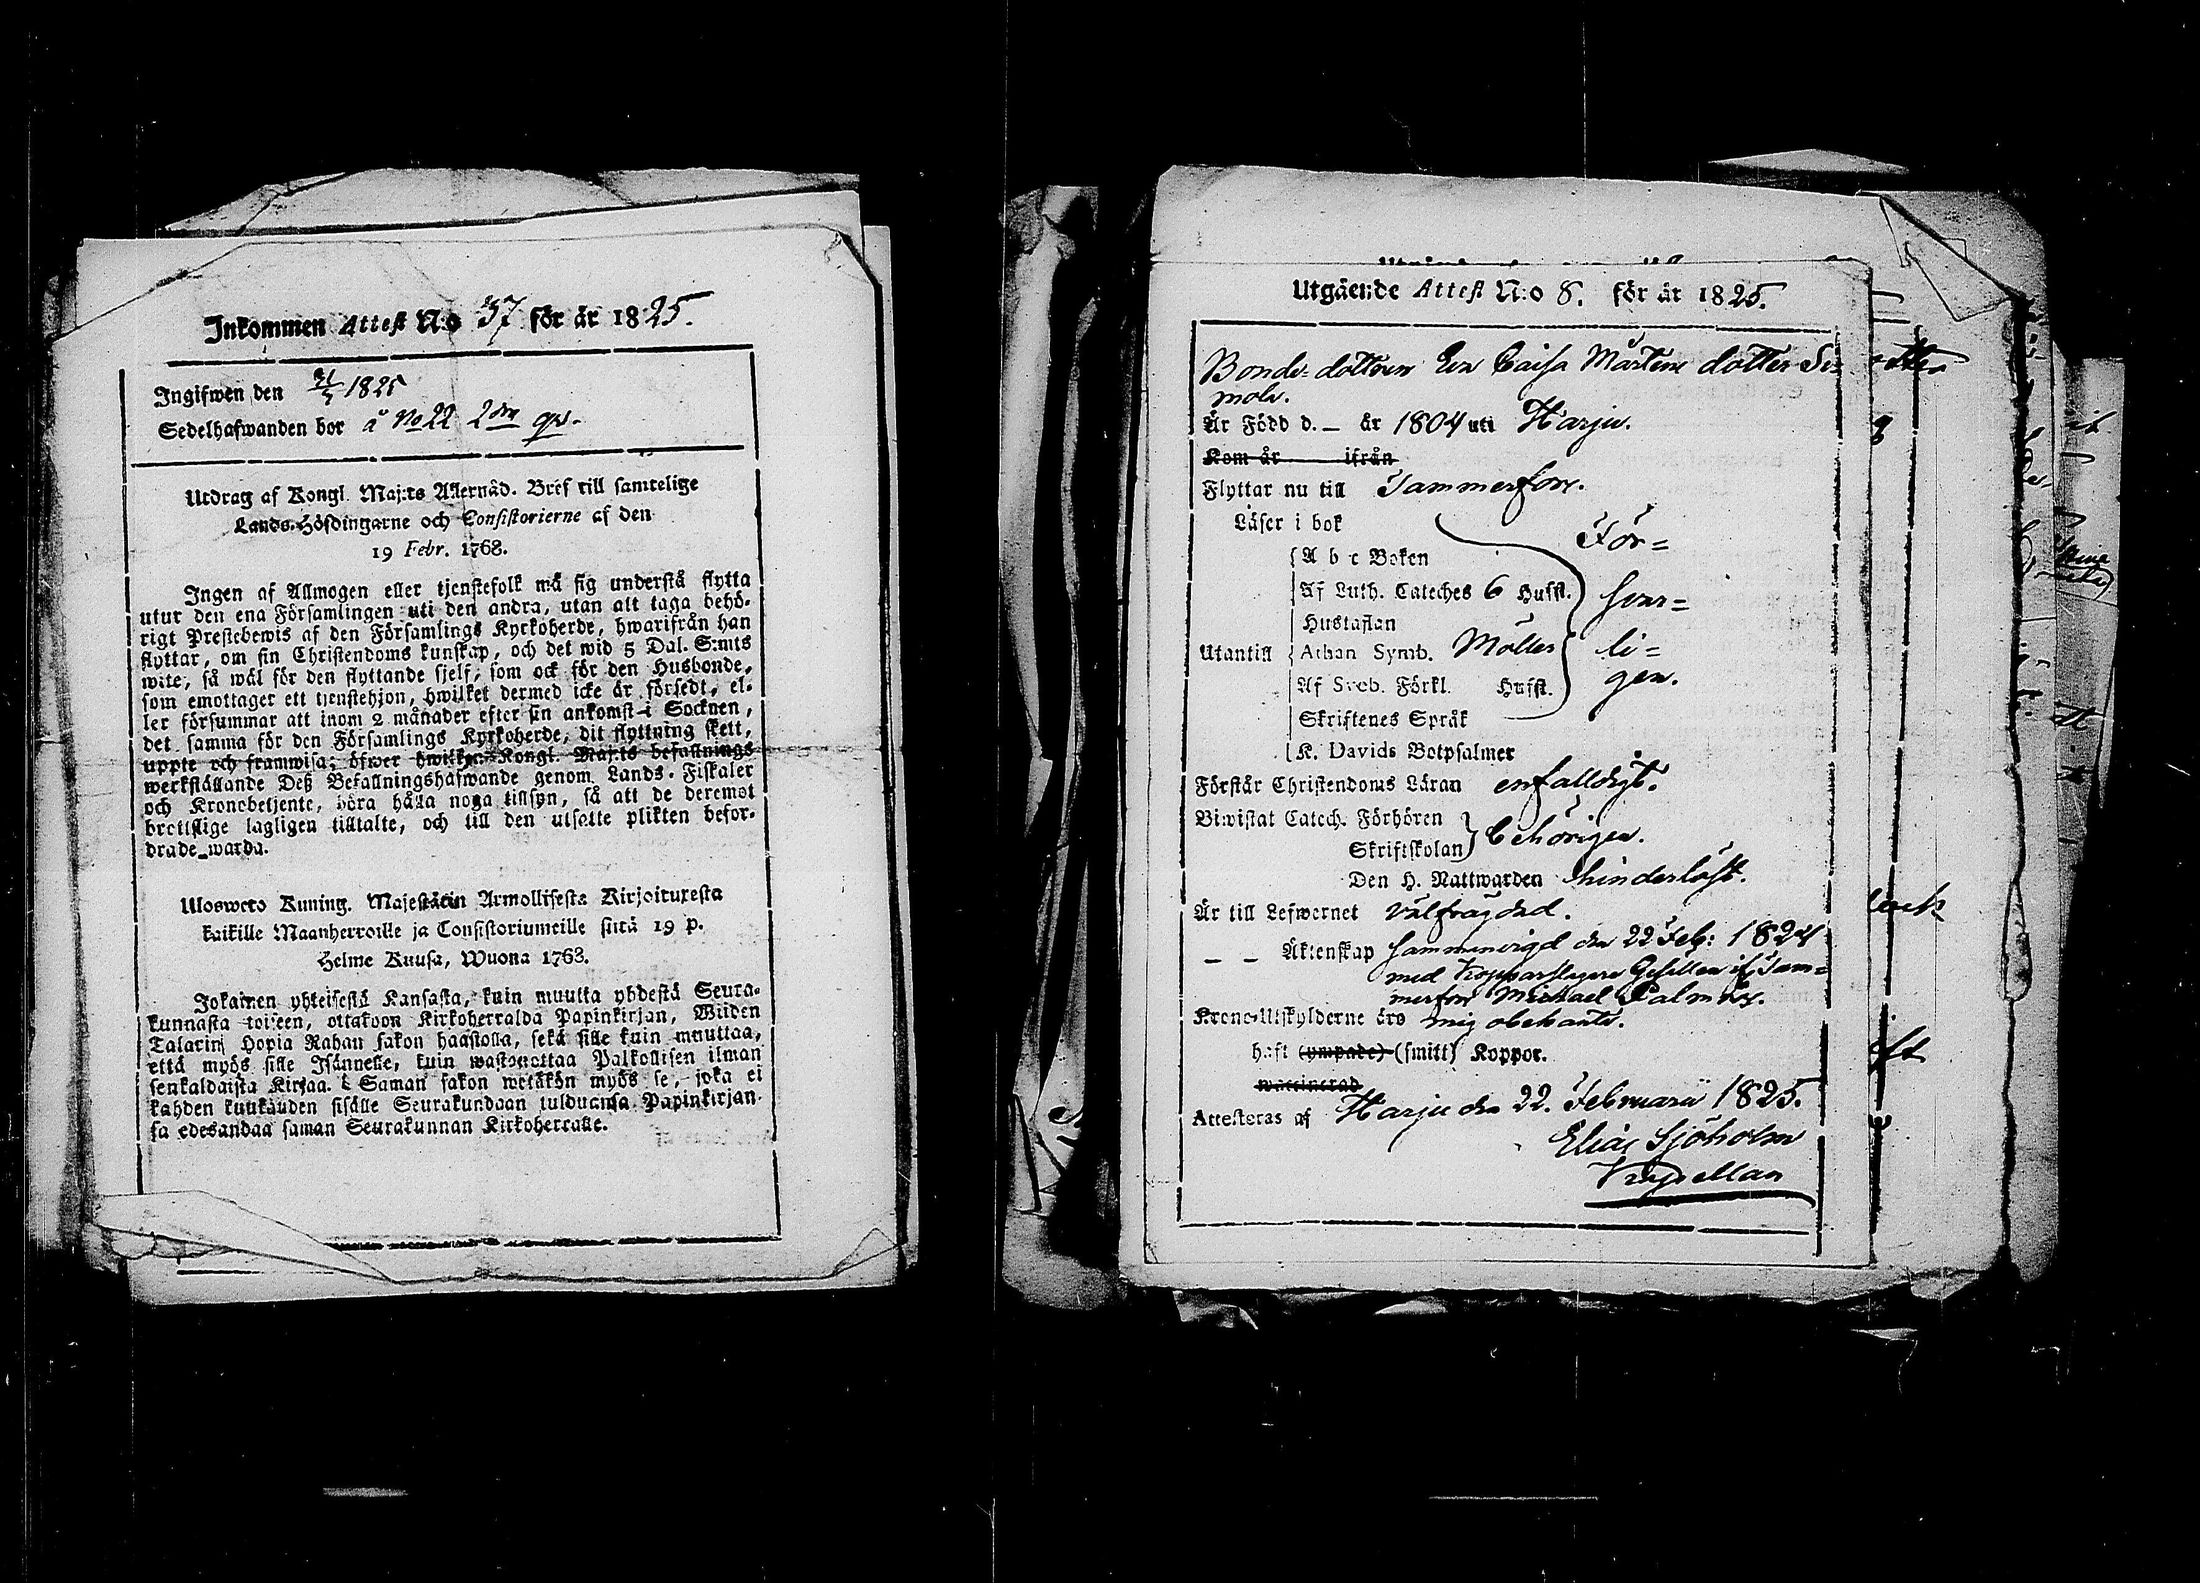 Inkommen Attest N:o 37 för år 1825.
Ingifwen den 21/5 1825
Sedelhafwanden bor å No 22 2dra qv.
Utdrag af Kongl. Maj:ts Allernåd. Bref till samtelige
Lands-Höfdingarne och Consistorierne af den
19 Febr. 1768.
Ingen af Allmogen eller tjenstefolk må sig understå flytta
utur den ena Församlingen uti den andra, utan att taga behö-
rigt Prestebewis af den Församlings Kyrkoherde, hwarifrån han
flyttar, om sin Christendoms kunskap, och det wid 5 Dal. S:mts
wite, så wäl för den flyttande sjelf, som ock för den Husbonde,
som emottager ett tjenstehjon, hwilket dermed icke är försedt, el-
ler försummar att inom 2 månader efter sin ankomst i Socknen,
det samma för den Församlings Kyrkoherde, dit flyttning skett,
uppte och framwisa; öfwer hwilken Kongl. Maj:ts befallnings
werkställande Deß Befallningshafwande genom Lands-Fiskaler
och Kronobetjente, böra hålla noga tillsyn, så att de deremot
brottslige lagligen tilltalte, och till den utsatte plikten befor-
drade warda.
Ulosweto Kuning. Majestätin Armollisesta Kirjoituxesta
kaikille Maanherroille ja Consistoriumeille siitä 19 p.
Helme Kuusa, Wuona 1768.
Jokainen yhteisestä Kansasta, kuin muutta yhdestä Seura-
kunnasta toiseen, ottakoon Kirkoherralda Papinkirjan, Wiiden
Talarin Hopia Rahan sakon haastolla, sekä sille kuin muuttaa,
että myös sille Isännelle, kuin wastanottaa Palkollisen ilman
senkaldaista Kirjaa. Saman sakon wetäkön myös se, joka ei
kahden kuukauden sisälle Seurakundaan tulduansa Papinkirjan-
sa edesandaa saman Seurakunnan Kirkoherralle.
Utgående Attest N:o 8. för år 1825.
Bonde-dottren Eva Caisa Mårtens dotter
mola.
Är Född d. – år 1804 uti Harju.
Kom år ifrån
Flyttar nu till Tammerfors.
Läser i bok För-
A b c Boken
Af Luth. Cateches 6 Hufst. svar-
Hustaflan
Utantill Athan Symb. Möller li-
Af Sveb. Förkl. Hufst. gen.
Skriftenes Språk
K. Davids Botpsalmer
Förstår Christendoms Läran enfalldigt.
Biwistat Catech. Förhören
Skriftskolan behörigen.
Den H. Nattwarden hinderlöst.
Är till Lefwernet välfrägdad.
– – Äktenskap sammanvigd den 22 Feb: 1824
med Kopparslagare Gesällen if. Tam-
merfors Michael Palmros.
Krono-Utskylderne äro mig obekante.
haft (ympade) (smitt) Koppor.
waccinerad
Attesteras af Harju den 22. Februarii 1825.
Elias Sjöholm
Kapellan